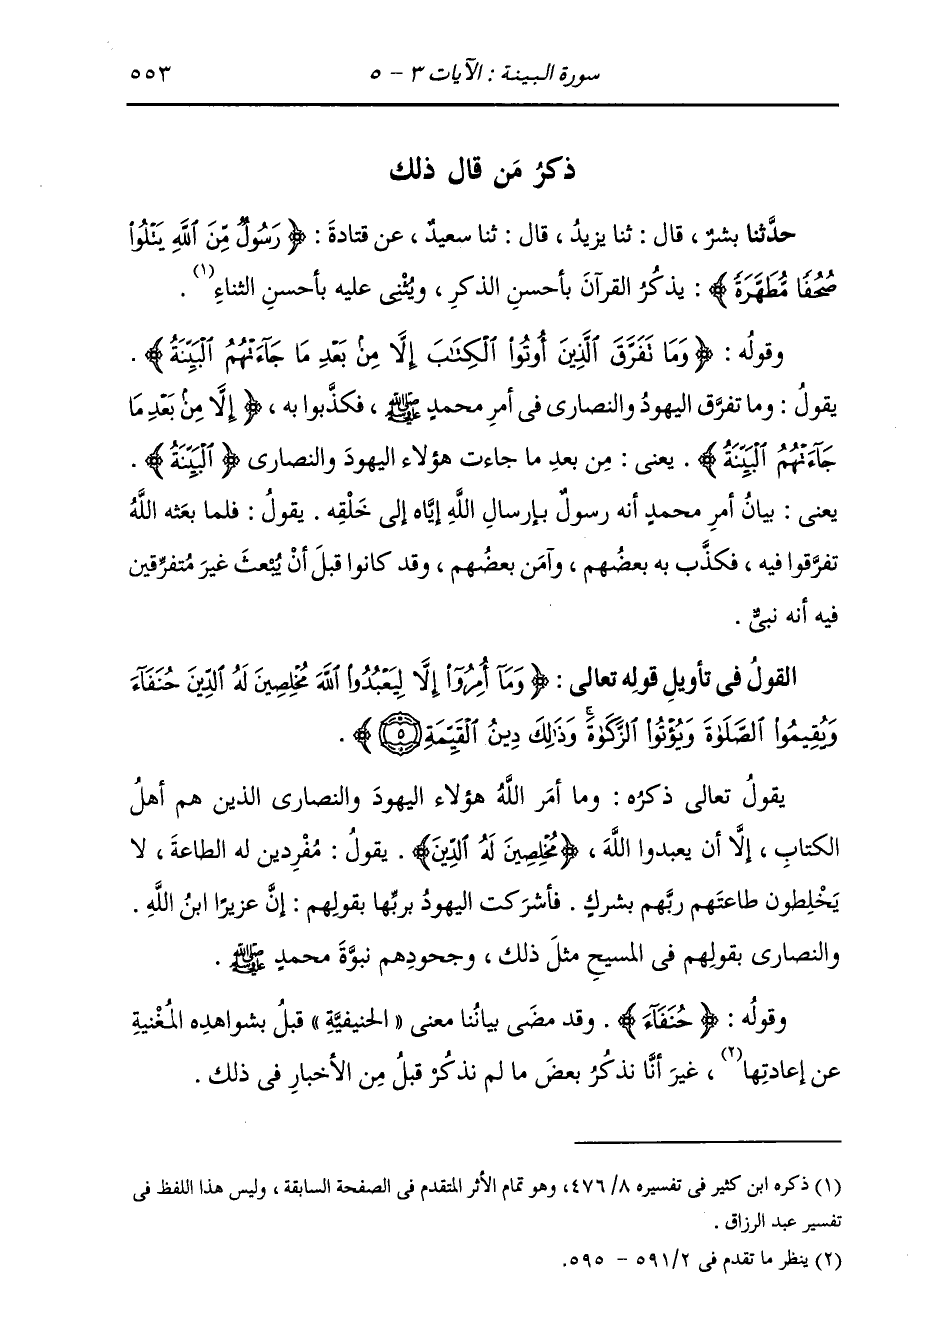 سورة البينة : الآيات ٣ - ٥ ٥٥٣
ذكرُ مَن قال ذلك
حدَّثنا بشرٌ ، قال : ثنا يزيدُ ، قال : ثنا سعيدٌ ، عن قتادةَ : ﴿ رَسُولٌ مِّنَ ٱللَّهِ يَتْلُوا۟
صُحُفًا مُّطَهَّرَةً ﴾ : يذكُرُ القرآنَ بأحسنِ الذكرِ ، ويُثْنى عليه بأحسنِ الثناءِ(١) .
وقولُه : ﴿ وَمَا تَفَرَّقَ ٱلَّذِينَ أُوتُوا۟ ٱلْكِتَـٰبَ إِلَّا مِنۢ بَعْدِ مَا جَآءَتْهُمُ ٱلْبَيِّنَةُ ﴾ .
يقولُ : وما تفرَّق اليهودُ والنصارى فى أمرِ محمدٍ ﷺ ، فكذَّبوا به ، ﴿ إِلَّا مِنۢ بَعْدِ مَا
جَآءَتْهُمُ ٱلْبَيِّنَةُ ﴾ . يعنى : مِن بعدِ ما جاءت هؤلاء اليهودَ والنصارى ﴿ ٱلْبَيِّنَةُ ﴾ .
يعنى : بيانُ أمرِ محمدٍ أنه رسولٌ بإرسالِ اللَّهِ إيَّاه إلى خَلْقِه . يقولُ : فلما بعَثه اللَّهُ
تفرَّقوا فيه ، فكذَّب به بعضُهم ، وآمَن بعضُهم ، وقد كانوا قبلَ أنْ يُبْعثَ غيرَ مُتفرِّقين
فيه أنه نبىٌّ .
القولُ فى تأويلِ قولِه تعالى : ﴿ وَمَآ أُمِرُوٓا۟ إِلَّا لِيَعْبُدُوا۟ ٱللَّهَ مُخْلِصِينَ لَهُ ٱلدِّينَ حُنَفَآءَ
وَيُقِيمُوا۟ ٱلصَّلَوٰةَ وَيُؤْتُوا۟ ٱلزَّكَوٰةَ ۚ وَذَٰلِكَ دِينُ ٱلْقَيِّمَةِ ٥ ﴾ .
يقولُ تعالى ذكرُه : وما أمَر اللَّهُ هؤلاء اليهودَ والنصارى الذين هم أهلُ
الكتابِ ، إلَّا أن يعبدوا اللَّهَ ، ﴿مُخْلِصِينَ لَهُ ٱلدِّينَ﴾ . يقولُ : مُفْرِدين له الطاعةَ ، لا
يَخْلِطون طاعتَهم ربَّهم بشركٍ . فأشرَكت اليهودُ بربِّها بقولِهم : إنَّ عزيرًا ابنُ اللَّهِ .
والنصارى بقولِهم فى المسيحِ مثلَ ذلك ، وجحودِهم نبوَّةَ محمدٍ ﷺ .
وقولُه : ﴿ حُنَفَآءَ ﴾ . وقد مضَى بيانُنا معنى « الحنيفيَّةِ » قبلُ بشواهدِه المُغْنيةِ
عن إعادتِها(٢) ، غيرَ أنَّا نذكُرُ بعضَ ما لم نذكُرْ قبلُ مِن الأخبارِ فى ذلك .
(١) ذكره ابن كثير فى تفسيره ٨/ ٤٧٦، وهو تمام الأثر المتقدم فى الصفحة السابقة ، وليس هذا اللفظ فى
تفسير عبد الرزاق .
(٢) ينظر ما تقدم فى ٥٩١/٢ - ٥٩٥.